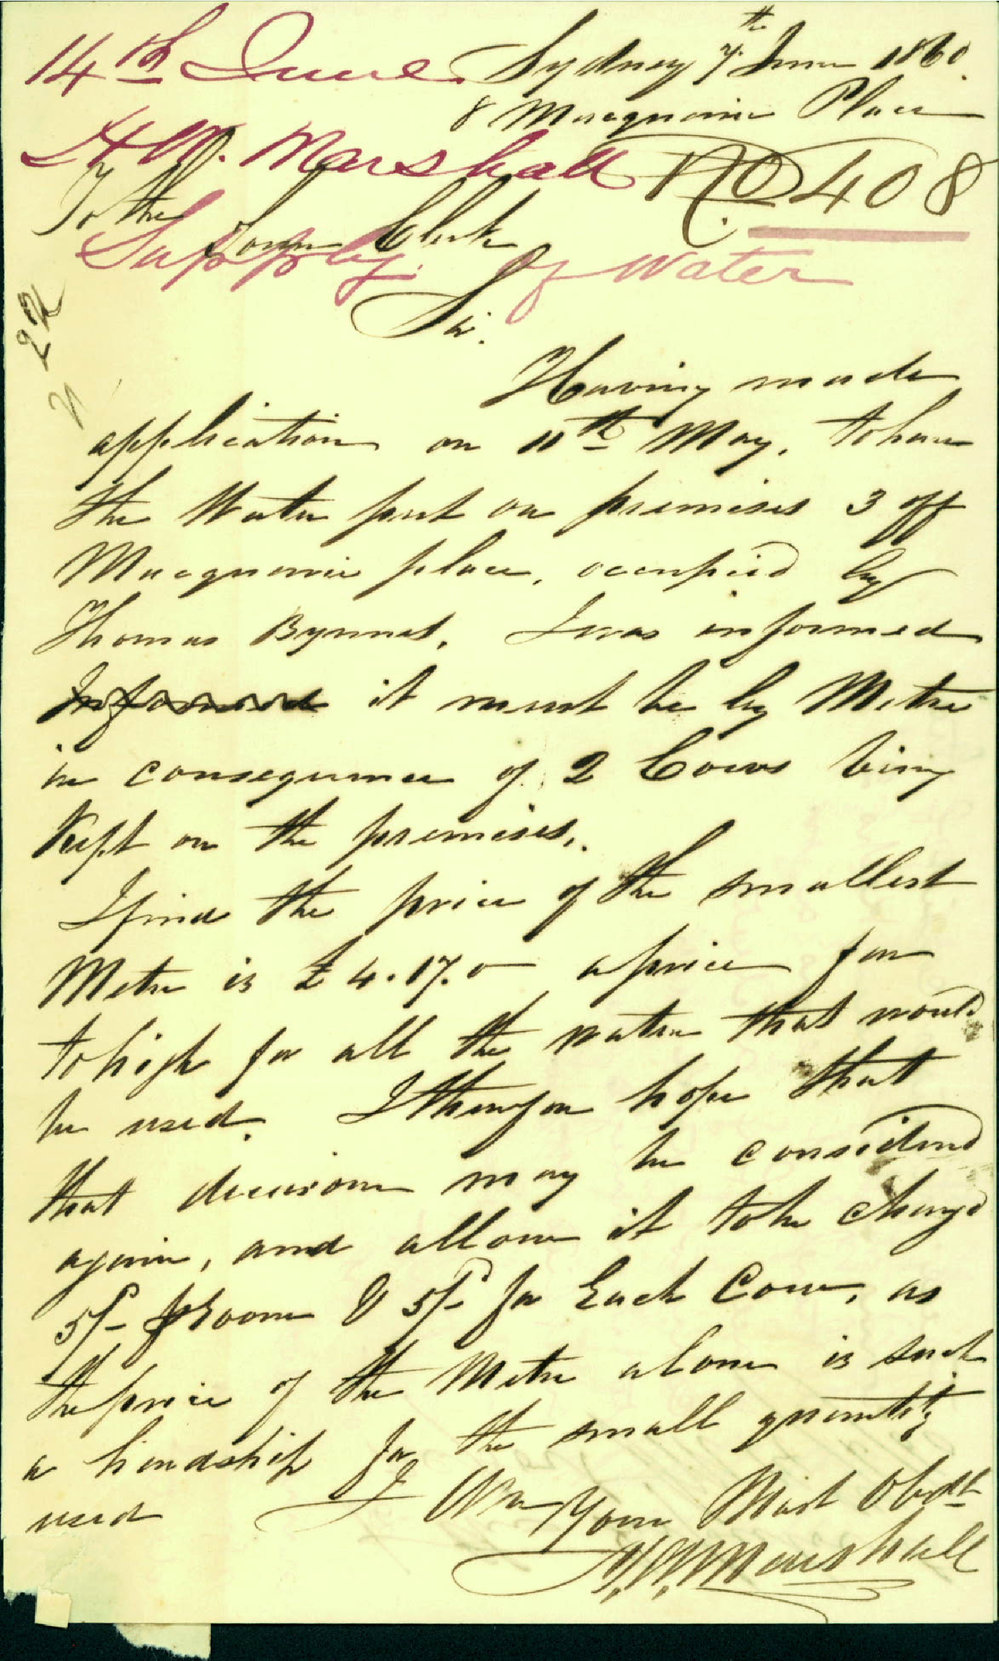 14th June
Sydney 7th June 1860.
8 Macquarie Place
H W. Marshall
No 408
To the
Town Clerk
Supply of Water
22
Sir.
Having made
application on 11th May, to have
the Water put on premises 3 off
Macquarie place, occupied by
Thomas Byrnes, I was informed
Informed it must be by Metre
in consequence of 2 Cows being
Kept on the premises.
I find the price of the smallest
Metre is £4.17.0 a price far
to high for all the water that would
be used. I therefore hope that
that decision may be considered
again, and allow it to be charged
5/- pr Room & 5/- for Each Cow, as
the price of the Metre alone is such
a hardship for the small quantity
used I
Your Most Obdt
H.W. Marshall